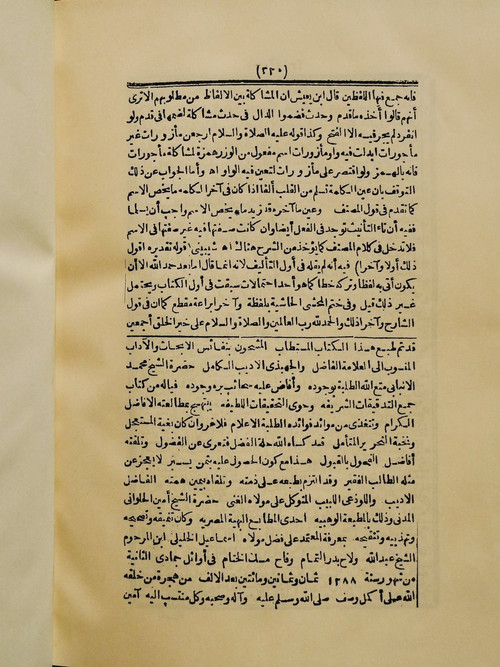 (٣٣٠)
فانه جمع فيها اللفظين قال ابن يعيش ان المشاكلة بين الالفاظ من مطلوبهم الاترى
أنهم قالوا أخذه ماقدم وحدث فضموا الدال فى حدث مشاكلة لضمها فى قدم ولو
انفرد لم يجز فيه الا الفتح وكذا قوله عليه الصلاة والسلام ارجعن مأزورات غير
مأجورات أبدلت فيه واو مأزورات اسم مفعول من الوزر همزة لمشاكلة مأجورات
فانه بالهمز ولو اقتصر على مأزورات لتعين فيه الواو اه وأما الجواب عن ذلك
التوقف بان عين الكلمة تسلم من القلب ألفا اذا كان فى آخر الكلمة ما يخص الاسم
كما تقدم فى قول المصنف وعين ما آخره قد زيد ما يخص الاسم واجب أن يسلما
ففيه أن تاء التأنيث توجد فى الفعل أيضا وان كانت صفتها فيه غير صفتها فى الاسم
فلا تدخل فى كلام المصنف كما يؤخذ من الشرح هنالك اه شبينى (قوله تقديره اقول
ذلك أولا وآخرا) فيه أنه لم يقله فى أول التأليف لانه انما قال أما بعد حمد الله الا أن
يكون أتى به لفظا وتركه خطا كما هو أحد احتمالات سبقت فى أول الكتاب ويحتمل
غير ذلك قيل وفى ختم المحشى الحاشية بلفظة وآخرا براعة مقطع كما ان فى قول
الشارح وآخرا ذلك والحمد لله رب العالمين والصلاة والسلام على خير الخلق أجمعين
قد تم طبع هذا الكتاب المستطاب المشحون بنفائس الابحاث والآداب
المنسوب الى العلامة الفاضل والجهبذى الاديب الكامل حضرة الشيخ محمد
الانبابى متع الله الطلبة بوجوده وأفاض عليه سحائب بره وجوده فياله من كتاب
جمع التدقيقات الشريفه وحوى التحقيقات اللطيفه يبتهج بمطالعته الافاضل
الكرام وتتغذى من موائد فوائده الطلبة الاعلام فلا غرو أن كان بغية المستعجل
ونخبة النحرير المتأمل قد كساه الله حلة الفضل فتعرى عن الفضول وتلقته
أفاضل الفحول بالقبول هذا مع كون الحصول عليه بثمن يسير لا يعجز عن
مثله الطالب الفقير وقد التزم بطبعه على ذمته وتلقاه بيمين همته الفاضل
الاديب واللوذعى اللبيب المتوكل على مولاه الغنى حضرة الشيخ أمين الحلوانى
المدنى وذلك بالمطبعة الوهبيه احدى المطابع البهية المصريه وكان تنميقه وتصحيحه
وتهذيبه وتنقيحه بمعرفة المعتمد على فضل مولاه اسماعيل الخليلى ابن المرحوم
الشيخ عبدالله ولاح بدر التمام وفاح مسك الختام فى أوائل جمادى الثانية
من شهور سنة ١٢٨٨ ثمان وثمانين ومائتين بعد الالف من هجرة من خلقه
الله على أكمل وصف صلى الله وسلم عليه وآله وصحبه وكل منتسب اليه آمين